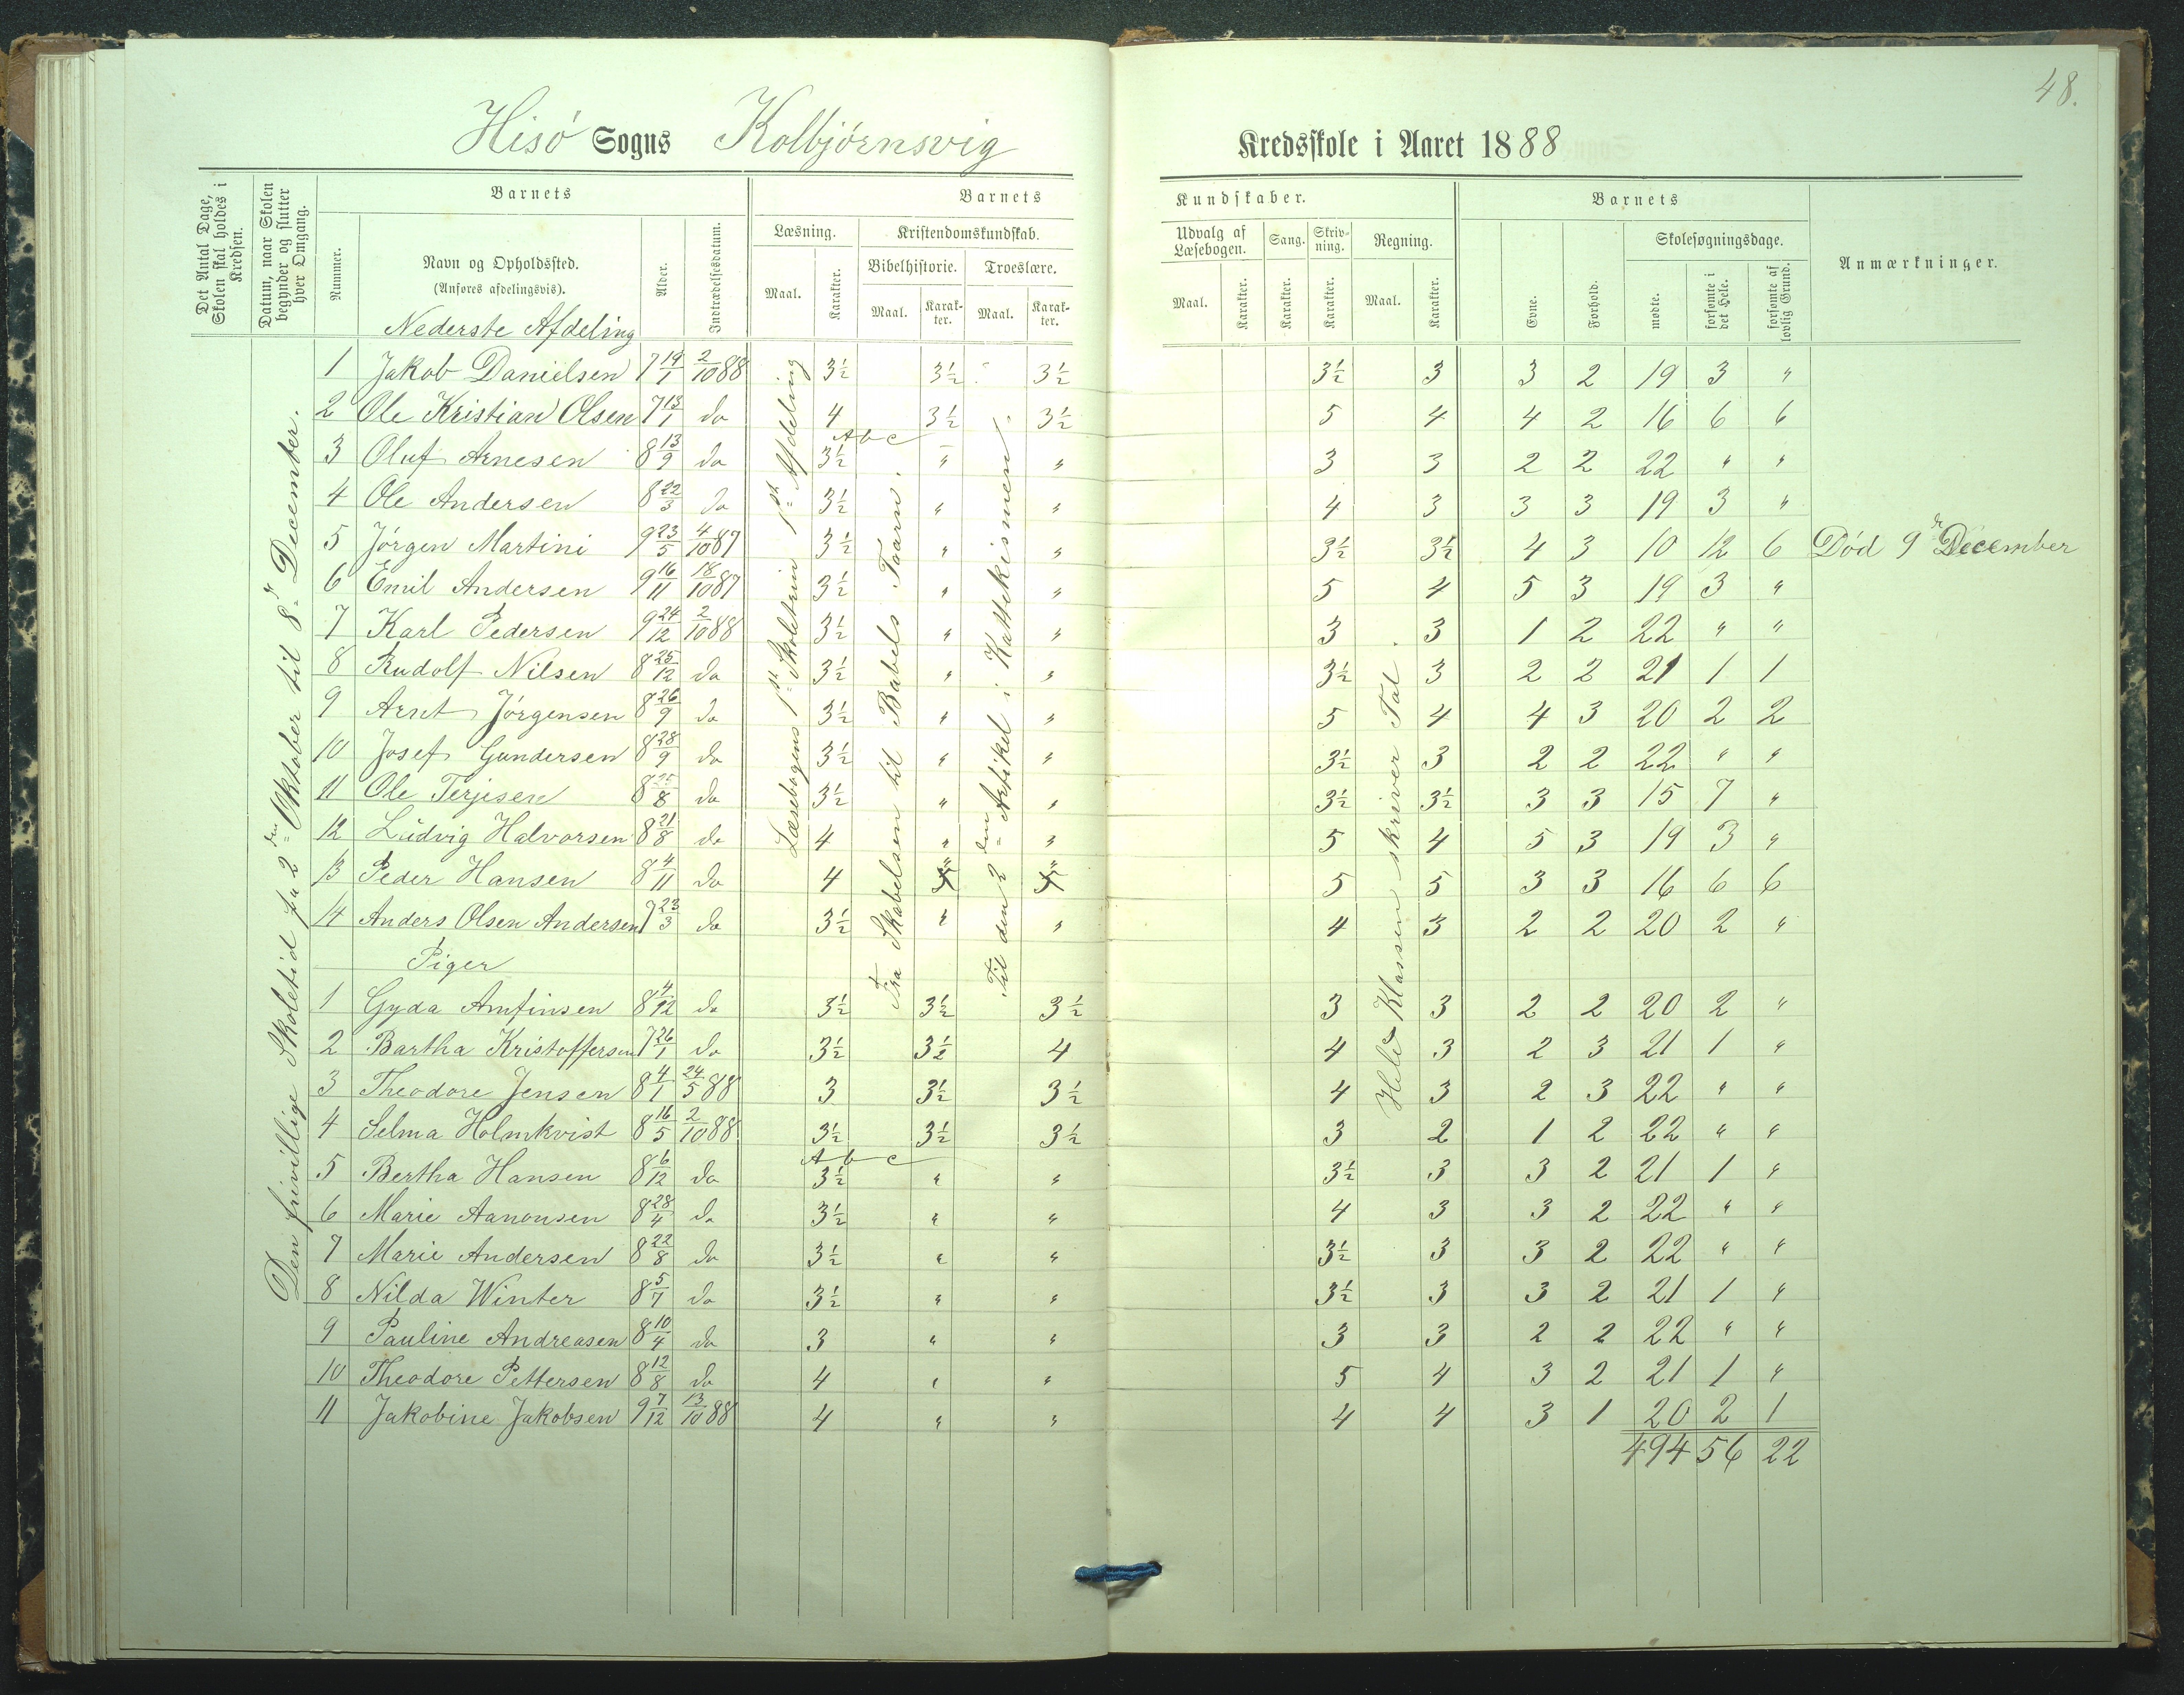 48.
Hisö Sogns Kolbjörnsvig Kredsskole i Aaret 1888
Det Antal Dage, Skolen skal holdes i Kredsen.
Datum, naar Skolen begynder og slutter hver Omgang.
Barnets
Nummer.
Navn og Opholdssted.
(Anføres afdelingsvis).
Alder.
Indtrædelsesdatum.
Barnets Kundskaber.
Læsning.
Maal. Karakter.
Kristendomskundskab.
Bibelhistorie. Troeslære.
Maal. Karakter. Maal. Karakter.
Udvalg af Læsebogen. Sang. Skrivning. Regning.
Maal. Karakter. Karakter. Karakter. Maal. Karakter.
Barnets
Evne. Forhold.
Skolesøgningsdage.
mødte. forsømte i det Hele. forsømte af lovlig Grund.
Anmærkninger.
Den frivillige Skoletid fra 2den Oktober til 8de December.
Læsebogens 1ste Skoletrin 1ste Afdeling
Fra Skabelsen til Babels Taarn.
Til den 2den Artikel i Kattekismen.
Hele Klassen skriver Tal.
Nederste Afdeling
1 Jakob Danielsen 7 19/1 2/10 88 3½ 3½ 3½ 3½ 3 3 2 19 3 "
2 Ole Kristian Olsen 7 13/1 do 4 3½ 3½ 5 4 4 2 16 6 6
Abc
3 Oluf Arnesen 8 13/9 do 3½ " " 3 3 2 2 22 " "
4 Ole Andersen 8 22/3 do 3½ " " 4 3 3 3 19 3 "
5 Jörgen Martini 9 23/5 4/10 87 3½ " " 3½ 3½ 4 3 10 12 6 Död 9de December
6 Emil Andersen 9 16/11 18/10 87 3½ " " 5 4 5 3 19 3 "
7 Karl Pedersen 9 24/12 2/10 88 3½ " " 3 3 1 2 22 " "
8 Rudolf Nilsen 8 25/12 do 3½ " " 3½ 3 2 2 21 1 1
9 Arnt Jörgensen 8 26/9 do 3½ " " 5 4 4 3 20 2 2
10 Josef Gundersen 8 28/9 do 3½ " " 3½ 3 2 2 22 " "
11 Ole Terjesen 8 do 3½ " " 3½ 3½ 3 3 15 7 "
12 Ludvig Halvorsen 8 21/8 do 4 " " 5 4 5 3 19 3 "
13 Peder Hansen 8 4/11 do 4 " " 5 5 3 3 16 6 6
14 Anders Olsen Andersen 7 23/3 do 3½ " " 4 3 2 2 20 2 "
Piger
1 Gyda Amfinsen 8 4/12 do 3½ 3½ 3½ 3 3 2 2 20 2 "
2 Bartha Kristoffersen 7 26/1 do 3½ 3½ 4 4 3 2 3 21 1 "
3 Theodore Jensen 8 4/1 24/5 88 3 3½ 3½ 4 3 2 3 22 " "
4 Selma Holmkvist 8 16/5 2/10 88 3½ 3½ 3½ 3 2 1 2 22 " "
Abc
5 Bertha Hansen 8 6/12 do 3½ " " 3½ 3 3 2 21 1 "
6 Marie Aanonsen 8 28/4 do 3½ " " 4 3 3 2 22 " "
7 Marie Andersen 8 22/8 do 3½ " " 3½ 3 3 2 22 " "
8 Nilda Winter 8 5/7 do 3½ " " 3½ 3 3 2 21 1 "
9 Pauline Andreasen 8 10/4 do 3 " " 3 3 2 2 22 " "
10 Theodore Pettersen 8 12/8 do 4 " " 5 4 3 2 21 1 "
11 Jakobine Jakobsen 9 7/12 13/10 88 4 " " 4 4 3 1 20 2 1
494 56 22